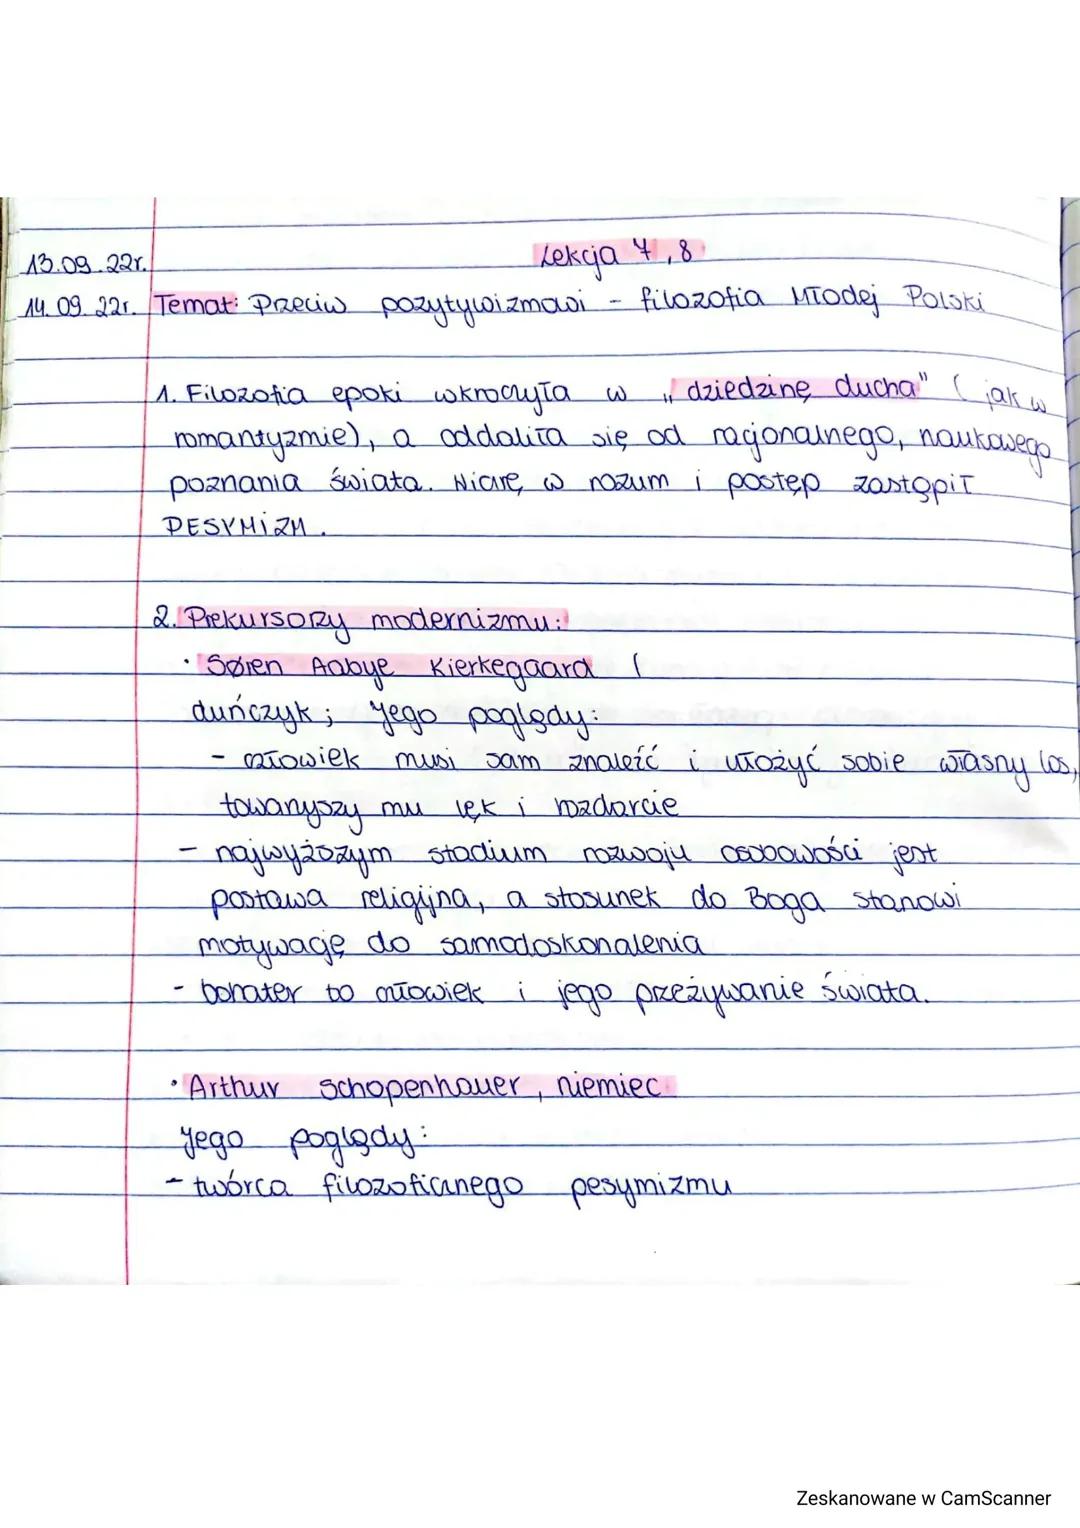 13.09.22r. Lekcja 7, 8
14.09.22r. Temat: Przeciw pozytywizmowi - filozofia Młodej Polski
1. Filozofia epoki wkroczyła w „dziedzinę ducha" (jak w
romantyzmie), a oddaliła się od racjonalnego, naukowego
poznania świata. Wiarę w rozum i postęp zastąpił
PESYMIZM.
2. Prekursorzy modernizmu:
• Søren Aabye Kierkegaard (
duńczyk; Jego poglądy:
- człowiek musi sam znaleźć i ułożyć sobie własny los,
towarzyszy mu lęk i rozdarcie
- najwyższym stadium rozwoju osobowości jest
postawa religijna, a stosunek do Boga stanowi
motywację do samodoskonalenia
- bohater to człowiek i jego przeżywanie świata.
• Arthur Schopenhauer, niemiec
Jego poglądy:
- twórca filozoficznego pesymizmu
Zeskanowane w CamScanner